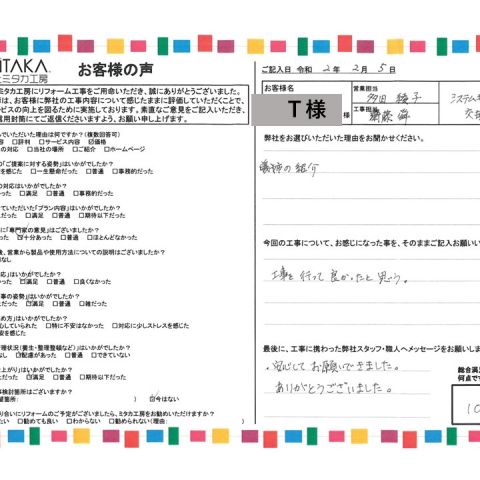 ITAKA
ミタカ工房
お客様の声
ミタカ工房にリフォーム工事をご用命いただき、誠にありがとうございました。
は、お客様に弊社の工事内容について感じたままに評価していただくことで、
ビスの向上を図るために実施しております。素直なご意見をご記入いただき、
信用封筒にてご返信くださいますよう、お願い申し上げます。
んでいただいた理由は何ですか？(複数回答可)
□評判 □サービス内容 ☑価格
の対応 □当社の場所 □ご紹介 □ホームページ
の「ご提案に対する姿勢」はいかがでしたか？
かった □一生懸命だった □普通 □事務的だった
の対応はいかがでしたか？
だった □満足 □普通 □事務的だった
せていただいた「プラン内容」はいかがでしたか？
だった □満足 □普通 □期待以下だった
に「専門家の意見」はございましたか？
った ☑十分あった □普通 □ほとんどなかった
後、営業から製品や使用方法についての説明はございましたか？
なし
応」はいかがでしたか？
かった ☑満足 □普通 □良くなかった
事の姿勢」はいかがでしたか？
だった ☑満足 □普通 □雑だった
め方」はいかがでしたか？
心していられた □特に不安はなかった □対応に少しストレスを感じた
安を感じた
管理状況(養生・整理整頓など)」はいかがでしたか？
なし ☑配慮があった □できていない
上がり」はいかがでしたか？
かった ☑満足 □普通 □期待以下だった
検討箇所はございますか？
箇所: ) ☑今はない
り合いにリフォームのご予定がございましたら、ミタカ工房をお勧めいただけますか？
たい □勧めても良い □わからない □勧められない(理由: )
ご記入日 令和 2年 2月 5日
お客様名
T様
様
営業担当
多田 綾子
工事担当
弊社をお選びいただいた理由をお聞かせください。
の紹介
今回の工事について、お感じになった事を、そのままご記入お願い
工事を行って良かったと思う。
最後に、工事に携わった弊社スタッフ・職人へメッセージをお願いしま
安心してお願いできました。
ありがとうございました。
総合満
何点で
10